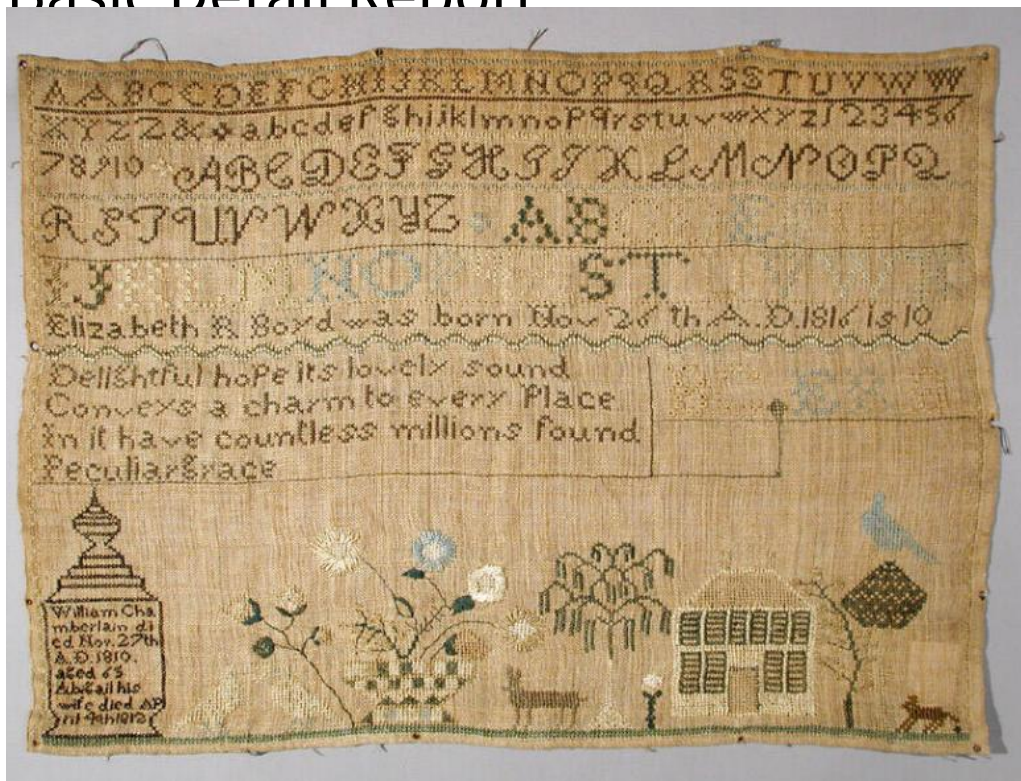 Basic Detail Report
A A B C C D E F G H I J K L M N O P P Q R S S T U V W W
X Y Z Z & a b c d e f g h i j k l m n o p q r s t u v w x y z 1 2 3 4 5 6
7 8 9 10 A B C D E F G H I J K L M N O P Q
R S T U V W X Y Z A B E
J N O S T V W
Elizabeth R Boyd was born Nov 26 th A.D.1816 is 10
Delightful hope its lovely sound
Conveys a charm to every Place
In it have countless millions found
Peculiar grace
William Cha
mberlain di
ed Nov. 27th
A.D. 1810.
aged 63
Abigail his
wife died AP
ril 1812